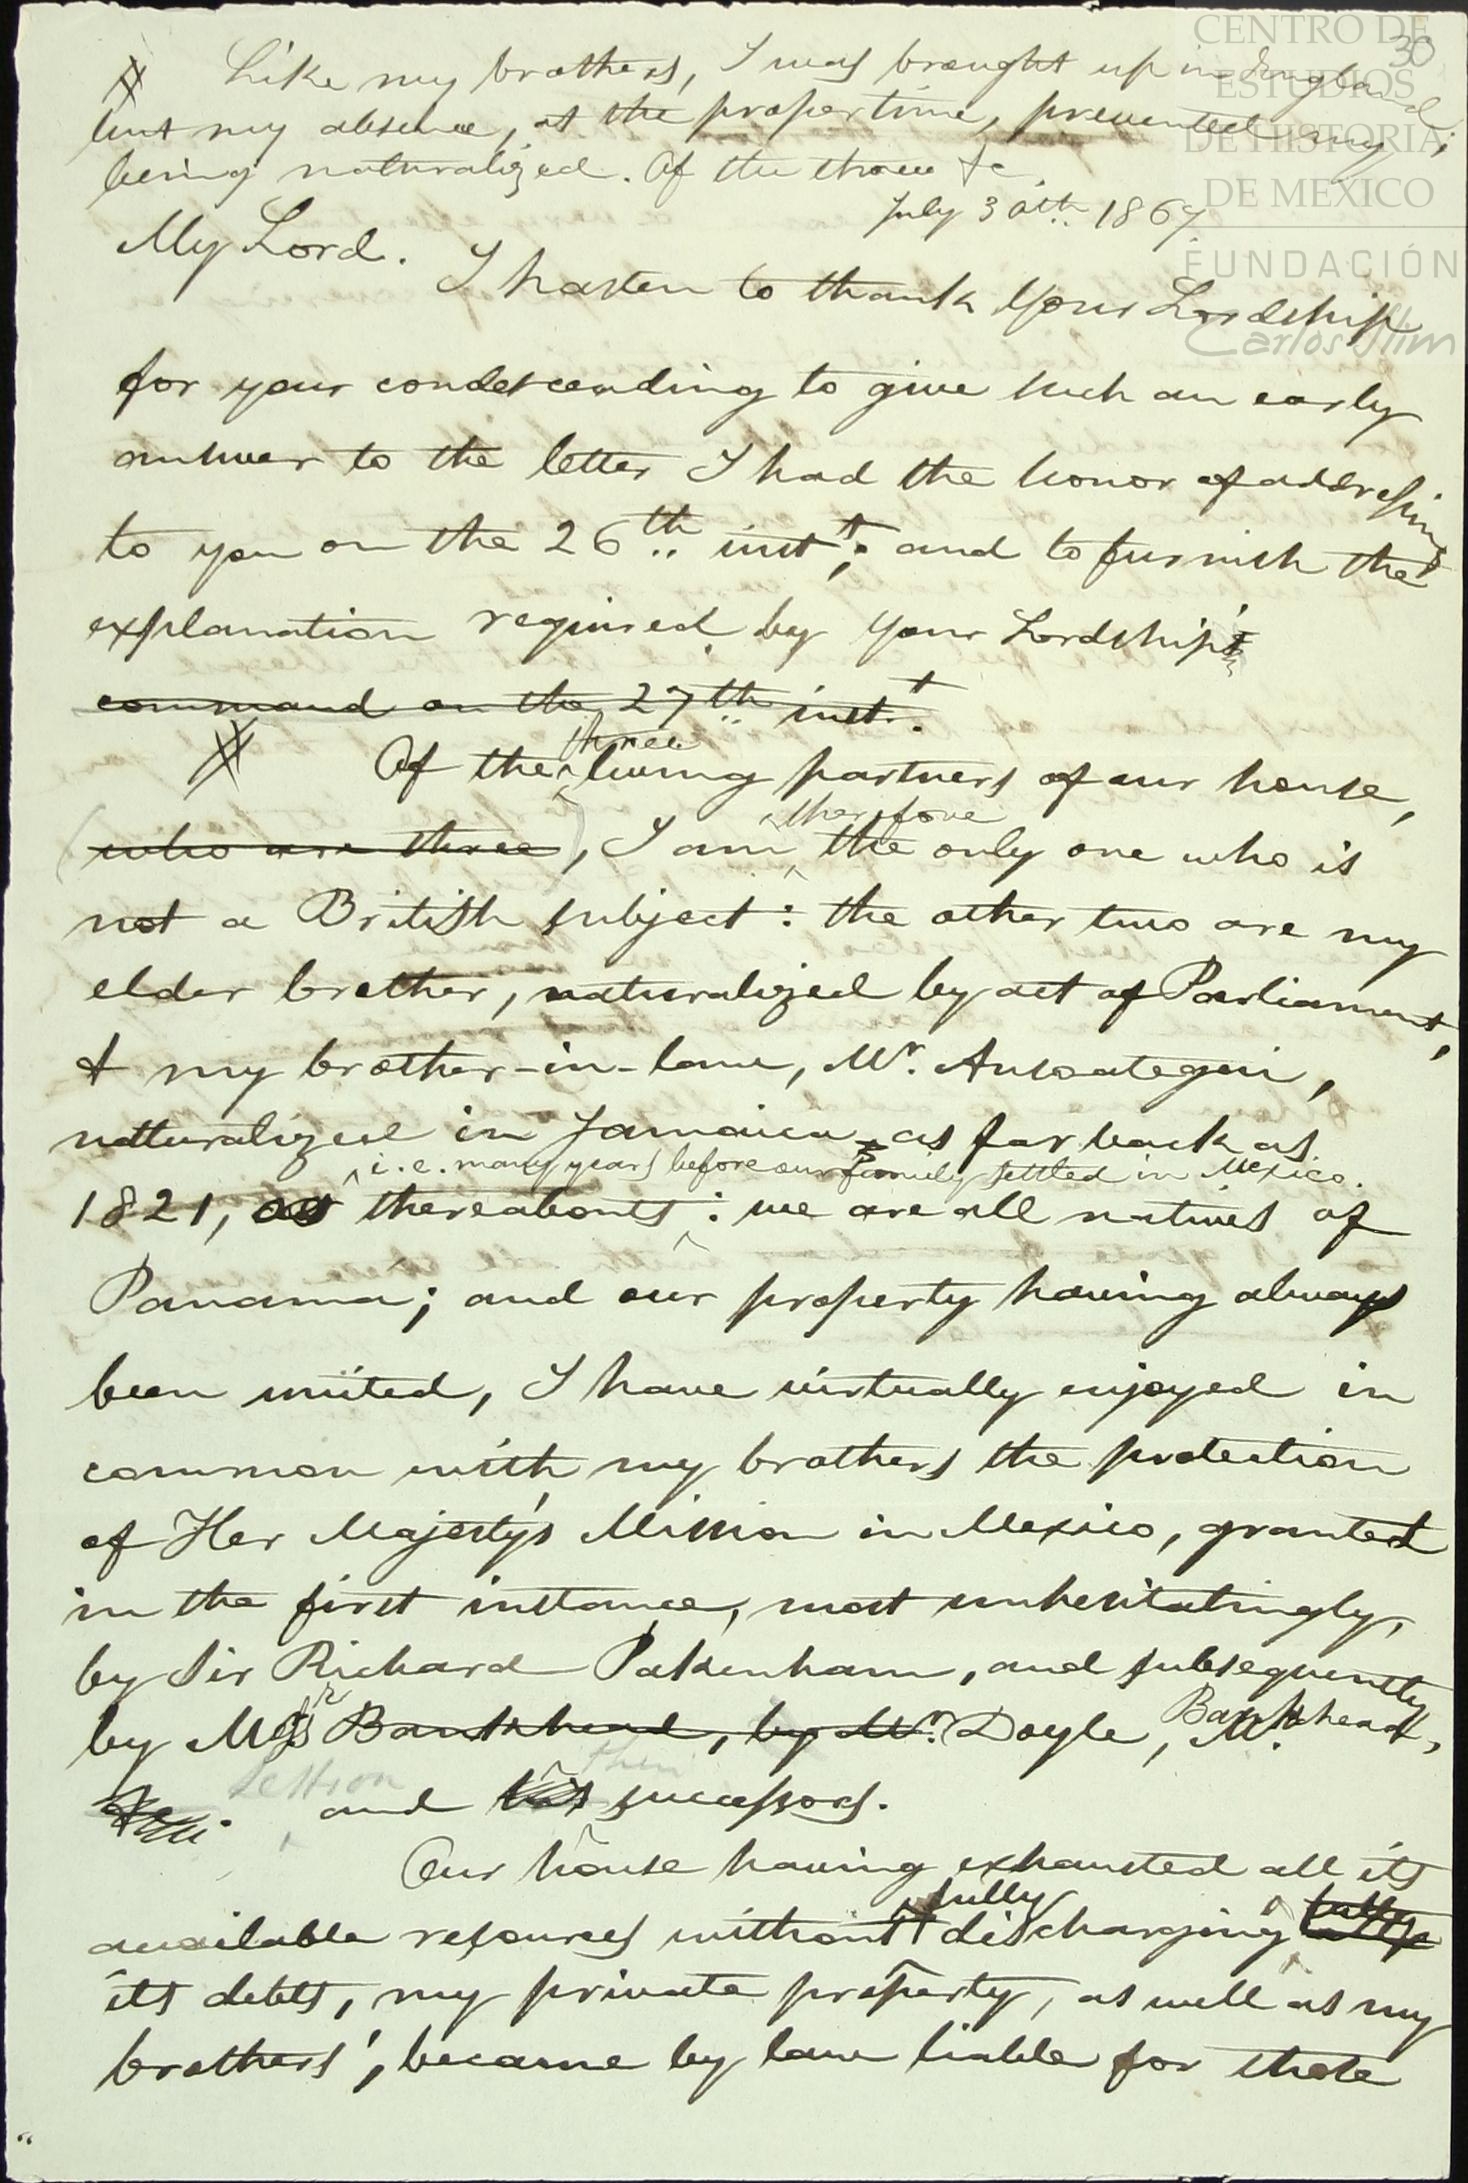 30
# Like my brothers, I was brought up in England,
but my absence, at the proper time, prevented my
being naturalized. Of the three &c
July 30th. 1867.
My Lord.
I hasten to thank Your Lordship
for your condescending to give such an early
answer to the letter I had the honor of addressing
to you on the 26th.. instt; and to furnish the
explanation required by Your Lordship's
command on the 27th.. inst.t
# Of the three living partners of our house,
(who are three), I am therefore the only one who is
not a British subject: the other two are my
elder brother, naturalized by act of Parliament,
& my brother-in-law, Mr. Ansoategui,
natturalized in Jamaica as far back as
i.e. many years before our family settled in Mexico.
1821, or thereabouts: we are all natives of
Panamá; and our property having always
been united, I have virtually enjoyed in
common with my brothers the protection
of Her Majesty's Mission in Mexico, granted
in the first instance, most unhesitatingly,
by Sir Richard Pakenham, and subsequently
by Mr Bankhead, by Mr. Doyle, Mr. Bankhead,
Lettson and his then successors.
Our house having exhausted all its
available resources without fully discharging fully
its debts, my private property, as well as my
brothers', became by law liable for those
CENTRO DE
ESTUDIOS
DE HISTORIA
DE MEXICO
FUNDACIÓN
Carlos Slim